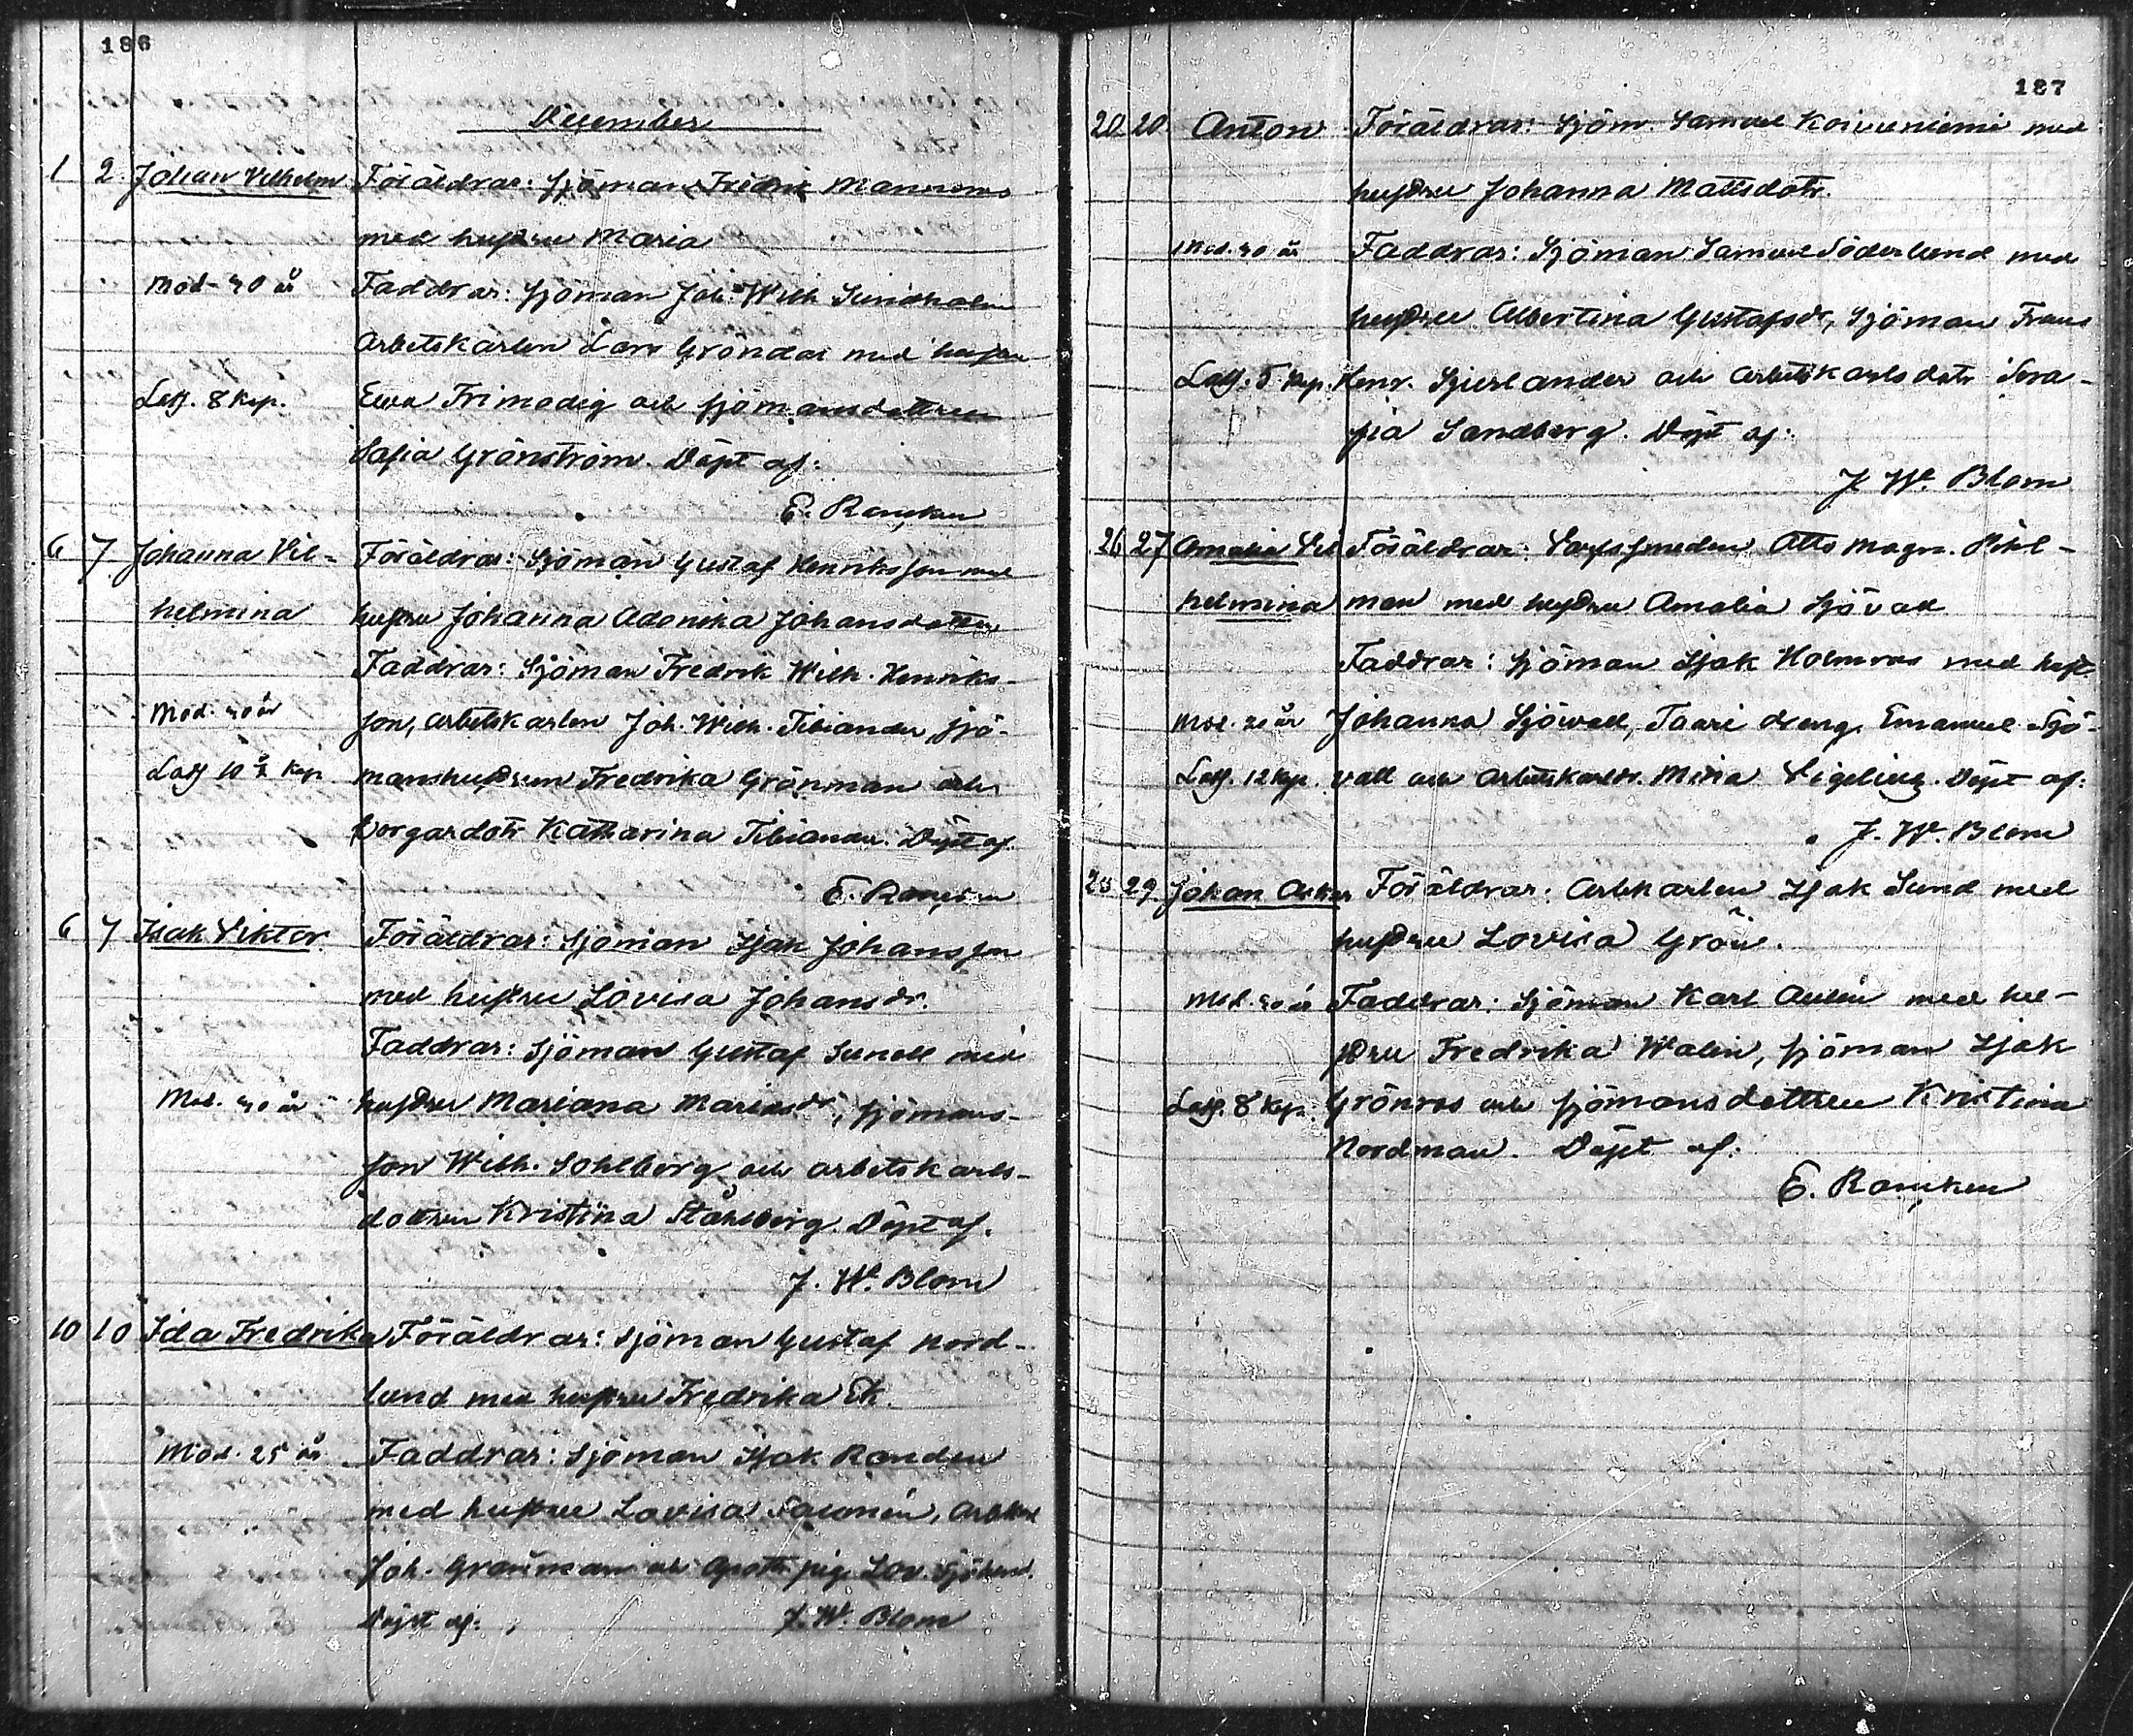 186
December
1 2. Johan Vilhelm Föräldrar: Sjöman Fredrik Mannroos
med hustru Maria
Mod. 40 år Faddrar: Sjöman Joh. Wilh Sundholm
Arbetskarlen Lars Gröndal med hustru
Lösf. 8 kop. Eva Frimodig och sjömansdottren
Sofia Grönström. Döpt af:
E. Rancken
6 7 Johanna Vil- Föräldrar: Sjöman Gustaf Henriksson med
helmina hustru Johanna Adonika Johansdotter
Faddrar: Sjöman Fredrik Wilh. Henriks-
Mod. 40 år son, arbetskarlen Joh. Wilh. Tibiander, sjö-
Lösf 10 kop manshustrun Fredrika Grönman och
borgardotr Katharina Tibiander. Döpt af.
E. Rancken
6 7 Isak Viktor Föräldrar: Sjöman Isak Johansson
med hustru Lovisa Johansdr.
Faddrar: Sjöman Gustaf Sunell med
Mod. 40 år hustru Mariana Mariasdr, sjömans-
son Wilh. Sohlberg och arbetskarls-
dottren Kristina Ståhlberg. Döpt af.
J. W. Blom
10 10 Ida Fredrika Föräldrar: Sjöman Gustaf Nord-
lund med hustru Fredrika Ek.
Mod. 25 år Faddrar: Sjöman Isak Randen
med hustru Lovisa
Joh. Grönman och Apoth. pig. Lov.
Döpt af: J. W. Blom
187
20 20. Anton Föräldrar: Sjöm. Samuel Koivuniemi med
hustru Johanna Mattsdotr.
Mod. 40 år Faddrar: Sjöman Samuel Söderlund med
hustru Albertina Gustafsdr, Sjöman Frans
Lösf. 5 kop. Henr. och arbetskarls dotr Sera-
fia Sandberg. Döpt af:
J. W. Blom
26 27 Amalia Vil Föräldrar: Otto Magn. Pihl-
helmina man med hustru Amalia Sjövall
Faddrar: Sjöman Isak Holmroos med hust.
Mod. 20 år Johanna Sjöwall, dreng. Emanuel Sjö-
Lösf. 12 kop. vall och Arbetskarldr. Mina Sigeling. Döpt af:
J. W. Blom
28 29. Johan Oskar Föräldrar: Arbkarlen Isak Sund med
hustru Lovisa Grön.
Mod. 40 år Faddrar: Sjöman Karl Aulin med hu-
stru Fredrika Walin, sjöman Isak
Lösf. 8 kop. Grönroos och sjömansdottren Kristina
Nordman. Döpt af:
E. Rancken